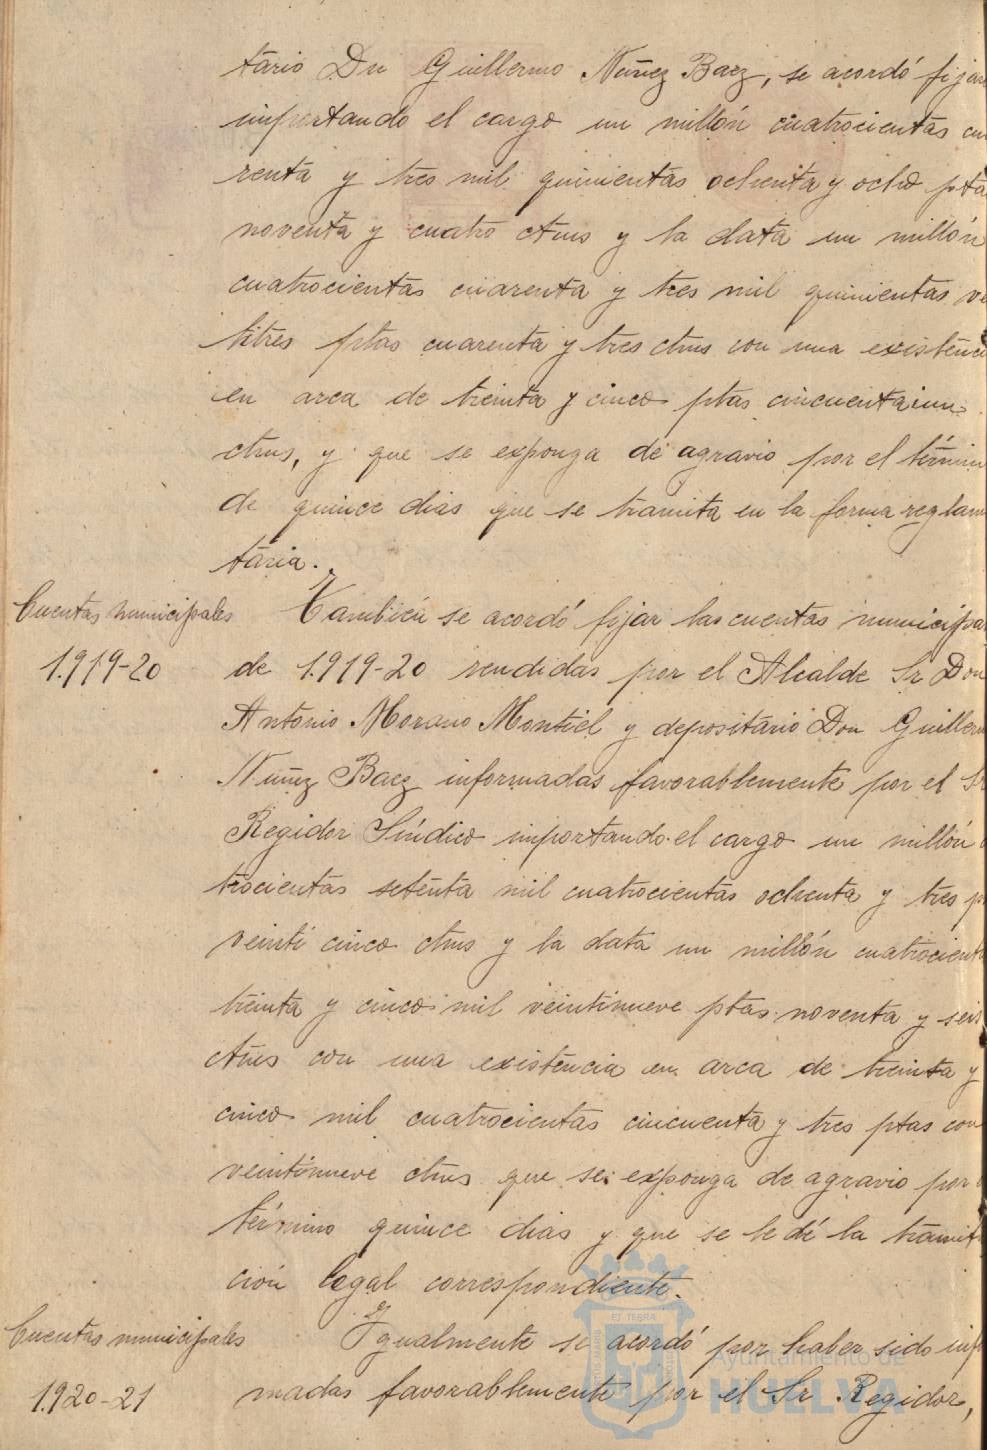 tario Dn Guillermo Nuñez Baez, se acordó fijar
importando el cargo un millón cuatrocientas cua
renta y tres mil quinientas ochenta y ocho pta
noventa y cuatro ctms y la data un millón
cuatrocientas cuarenta y tres mil quinientas ve
titres ptas cuarenta y tres ctms con una existenci
en arca de treinta y cinco ptas cincuentaiun
ctms, y que se exponga de agravio por el términ
de quince dias que se tramita en la forma reglam
taria.
Cuentas municipales
1.919-20
Tambien se acordó fijar las cuentas municipa
de 1.919-20 rendidas por el Alcalde Sr Don
Antonio Morano Montiel y depositario Don Guillerm
Nuñez Baez informadas favorablemente por el Sr
Regidor Síndico importando el cargo un millón
trocientas setenta mil cuatrocientas ochenta y tres p
veinti cinco ctms y la data un millón cuatrocient
treinta y cinco mil veintinueve ptas noventa y seis
ctms con una existencia en arca de treinta y
cinco mil cuatrocientas cincuenta y tres ptas con
veintinueve ctms que se exponga de agravio por
término quince dias y que se le dé la tramit
ción legal correspondiente.
Cuentas municipales
1.920-21
Igualmente se acordó por haber sido infor
madas favorablemente por el Sr Regidor,
Ayuntamiento de
HUELVA